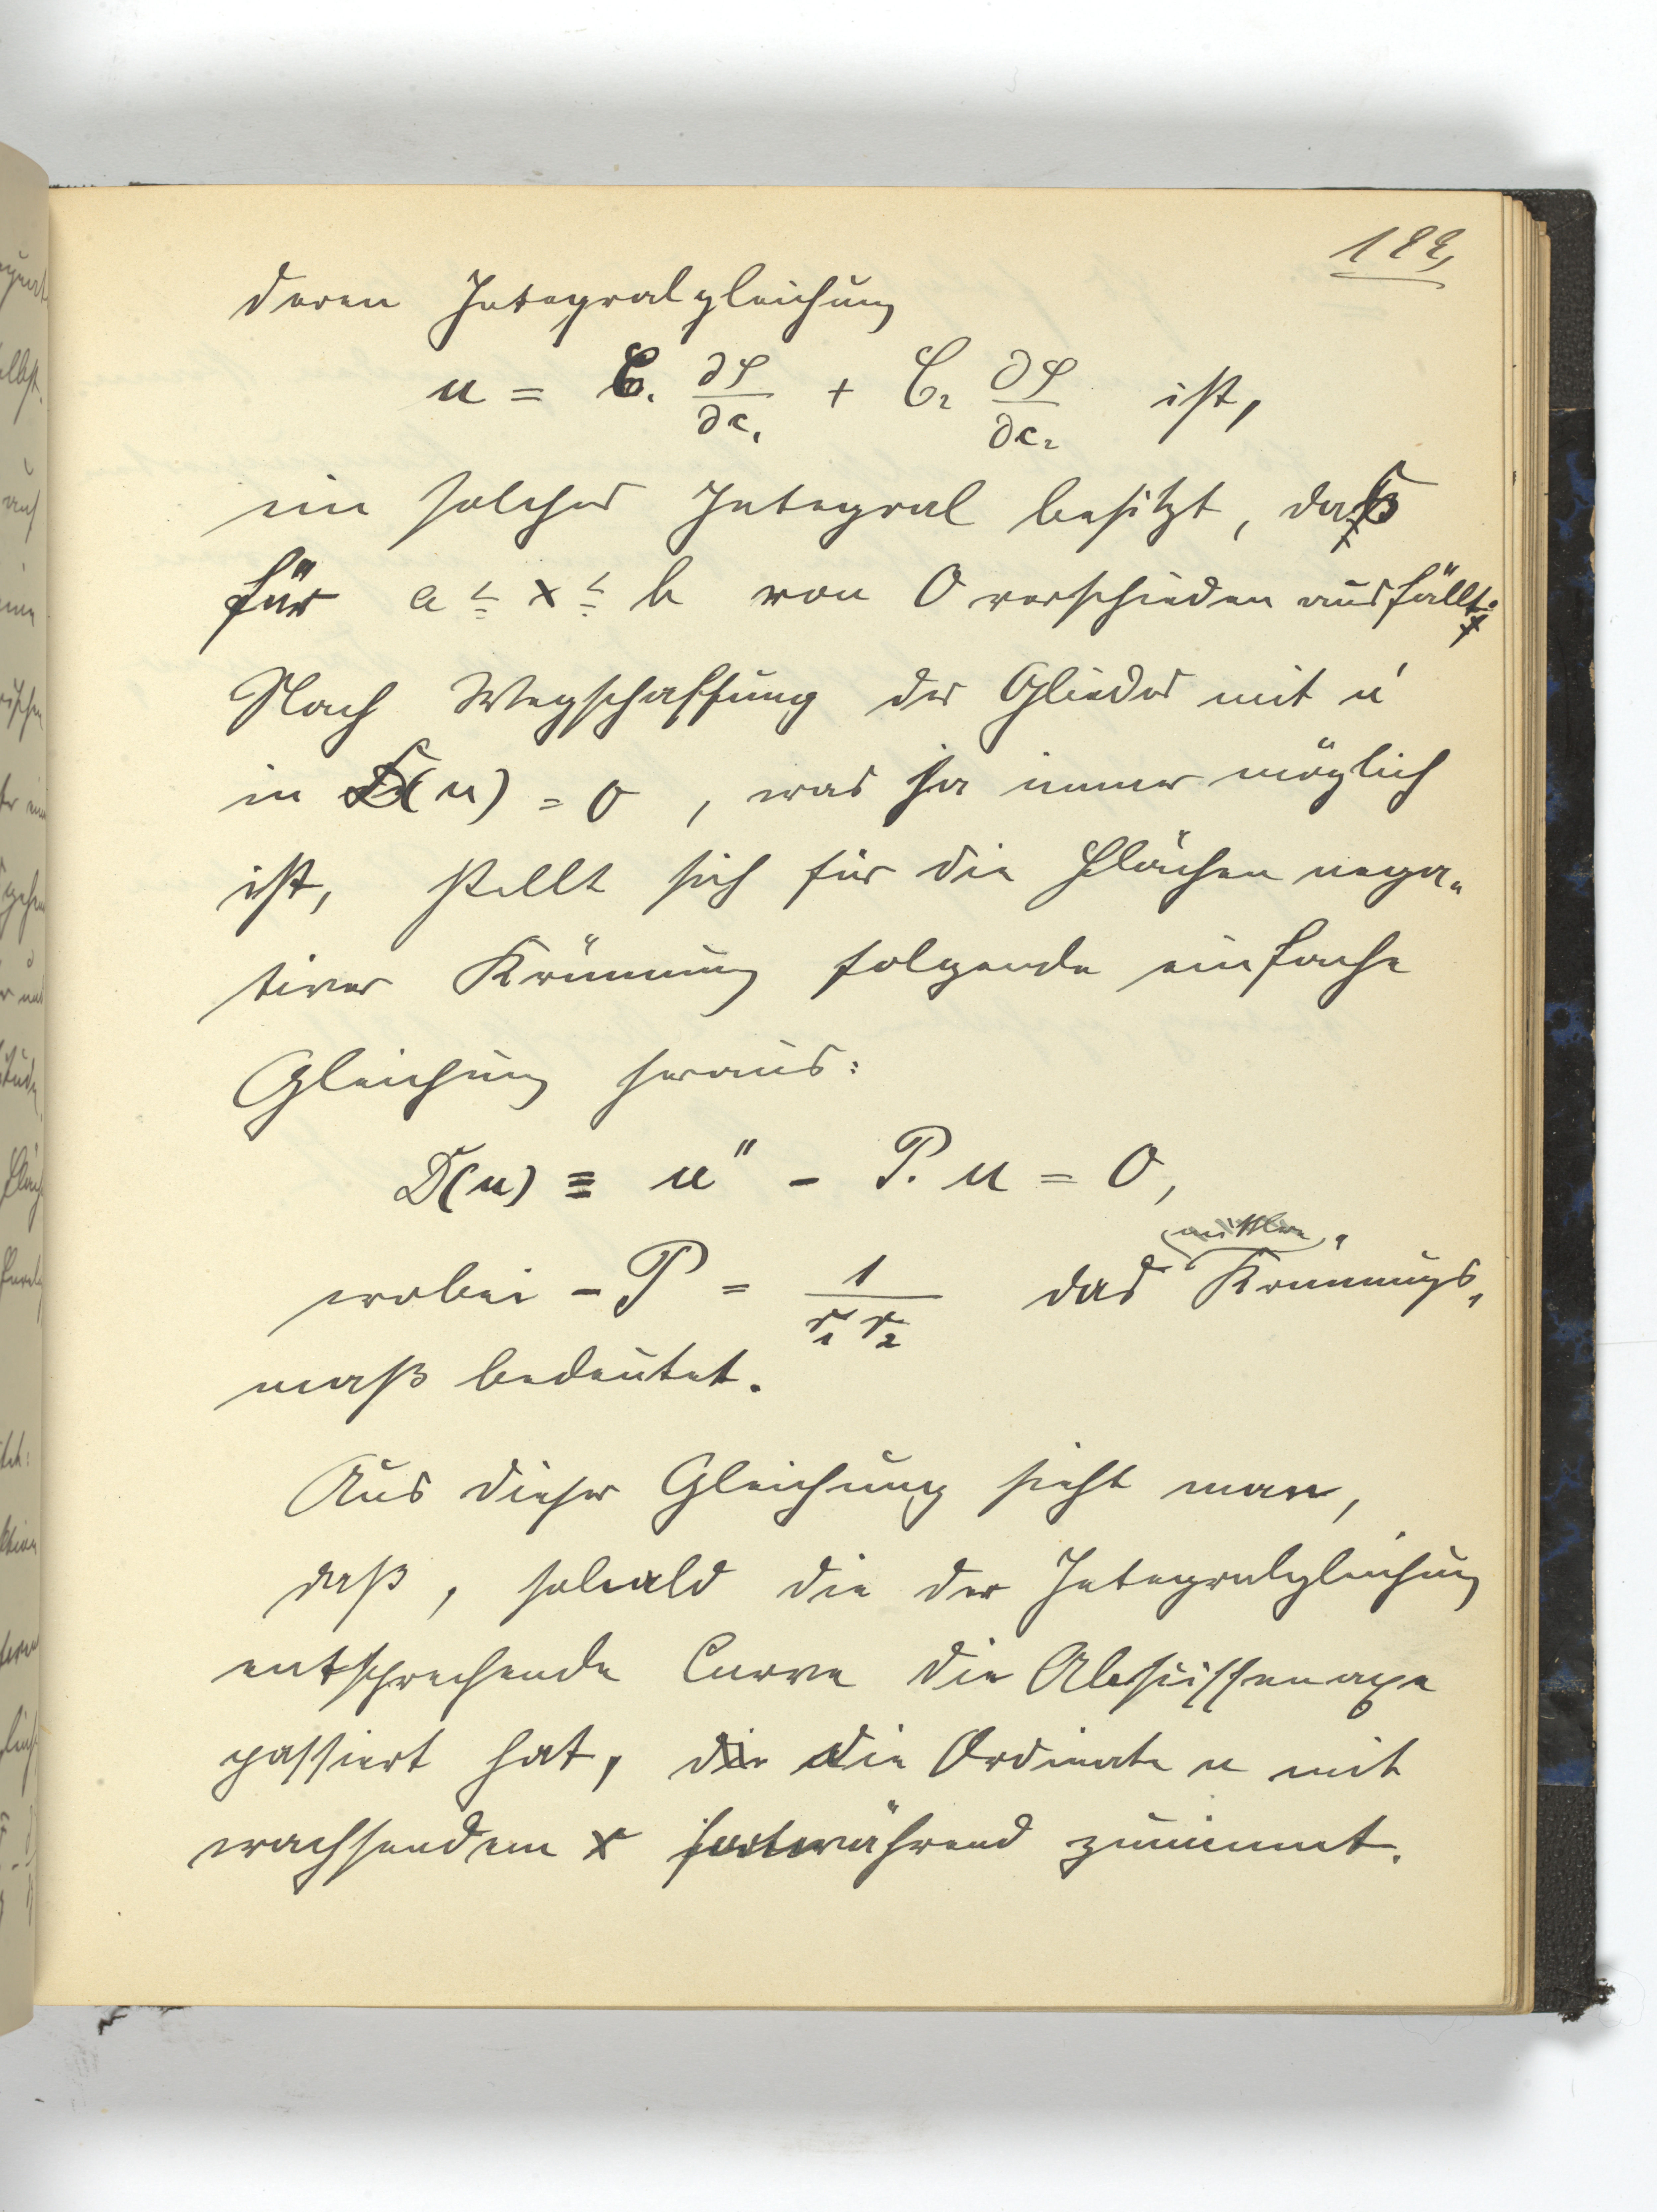 122,
deren Integralgleichung
u = C₁ ∂φ/∂c₁ + C₂ ∂φ/∂c₂ ist,
ein solches Integral besitzt, daß
für a ≤ x ≤ b von 0 verschieden ausfällt.
Nach Wegschaffung des Gliedes mit u'
in D(u) = 0, was ja immer möglich
ist, stellt sich für die Flächen nega-
tiver Krümmung folgende einfache
Gleichung heraus:
D(u) ≡ u'' - P. u = 0,
wobei - P = 1/r₁r₂ das Krümmungs-
maß bedeutet.
Aus dieser Gleichung sieht man,
daß, sobald die der Integralgleichung
entsprechende Curve die Abscissenaxe
passiert hat, die Ordinate u mit
wachsendem x fortwährend zunimmt.